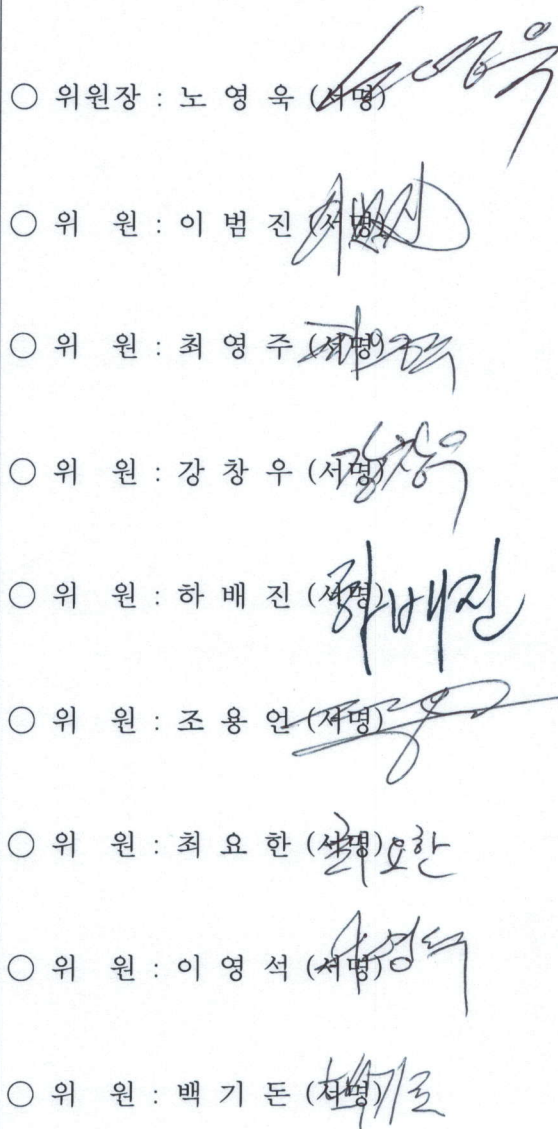 ○ 위원장 : 노 영 욱 (서명)
○ 위 원 : 이 범 진 (서명)
○ 위 원 : 최 영 주 (서명)
○ 위 원 : 강 창 우 (서명)
○ 위 원 : 하 배 진 (서명) 하배진
○ 위 원 : 조 용 언 (서명)
○ 위 원 : 최 요 한 (서명) 최요한
○ 위 원 : 이 영 석 (서명)
○ 위 원 : 백 기 돈 (서명)